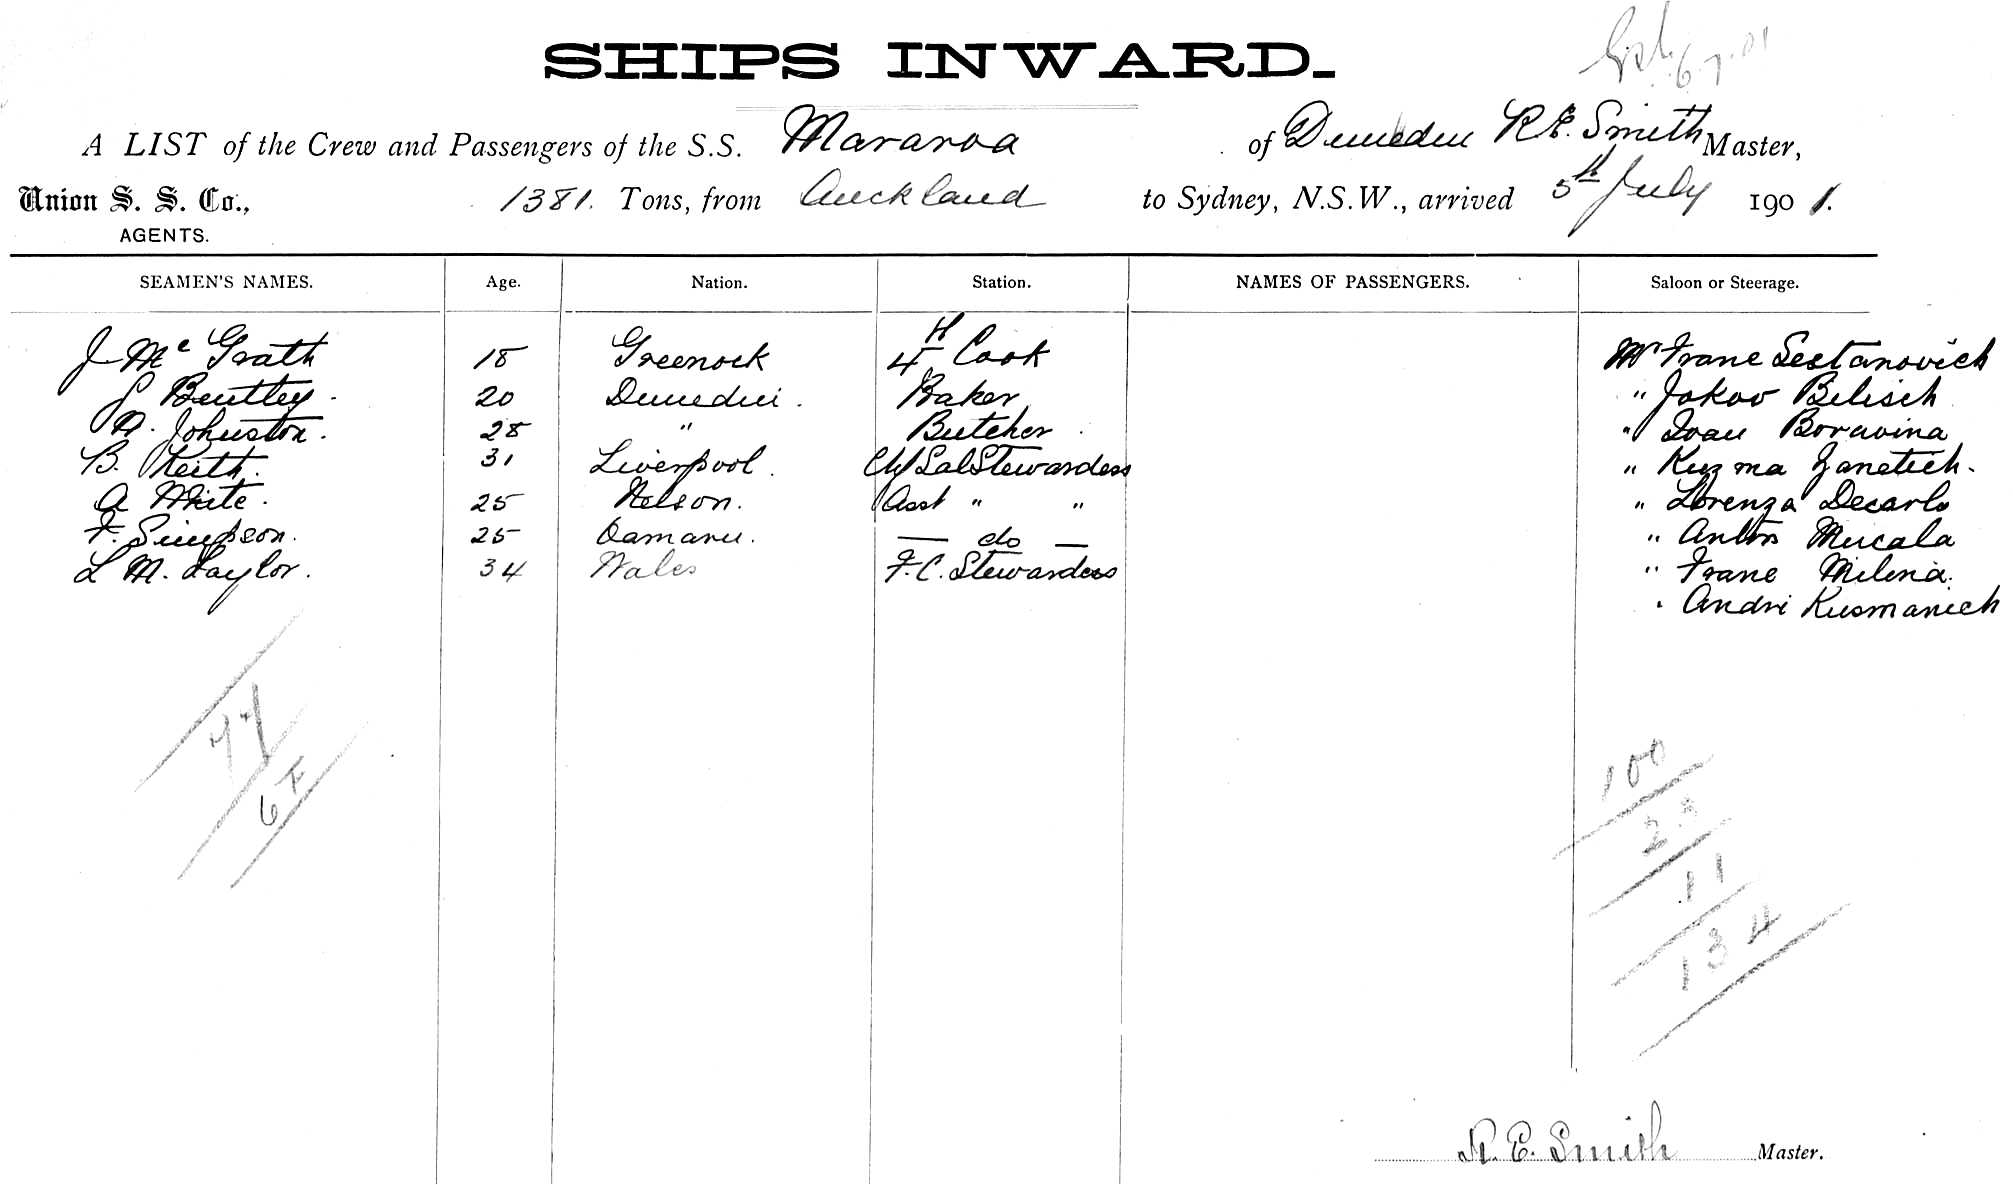 SHIPS INWARD.
6.7.01
A LIST of the Crew and Passengers of the S.S. Mararoa of Dunedin R E. Smith Master,
Union S. S. Co., 1381. Tons, from Auckland to Sydney, N.S.W., arrived 5th July 1901.
AGENTS.
SEAMEN'S NAMES. Age. Nation. Station. NAMES OF PASSENGERS. Saloon or Steerage.
J McGrath 18 Greenock 4th Cook Mr Frane Sestanovich
J Bentley. 20 Dunedin. Baker " Jokov Belisch
A. Johnston. 28 " Butcher " Ivan Boravina
B. Keith. 31 Liverpool. Chf Sal Stewardess " Kuzma Janetich.
A White. 25 Nelson. Asst " " " Lorenza Decarlo
F. Simpson. 25 Oamaru. — do — " Anton Mucala
L M. Taylor. 34 Wales F. C. Stewardess " Frane Milina.
" Andri Kusmanich
77
6 F
100
23
11
134
R. E. Smith Master.